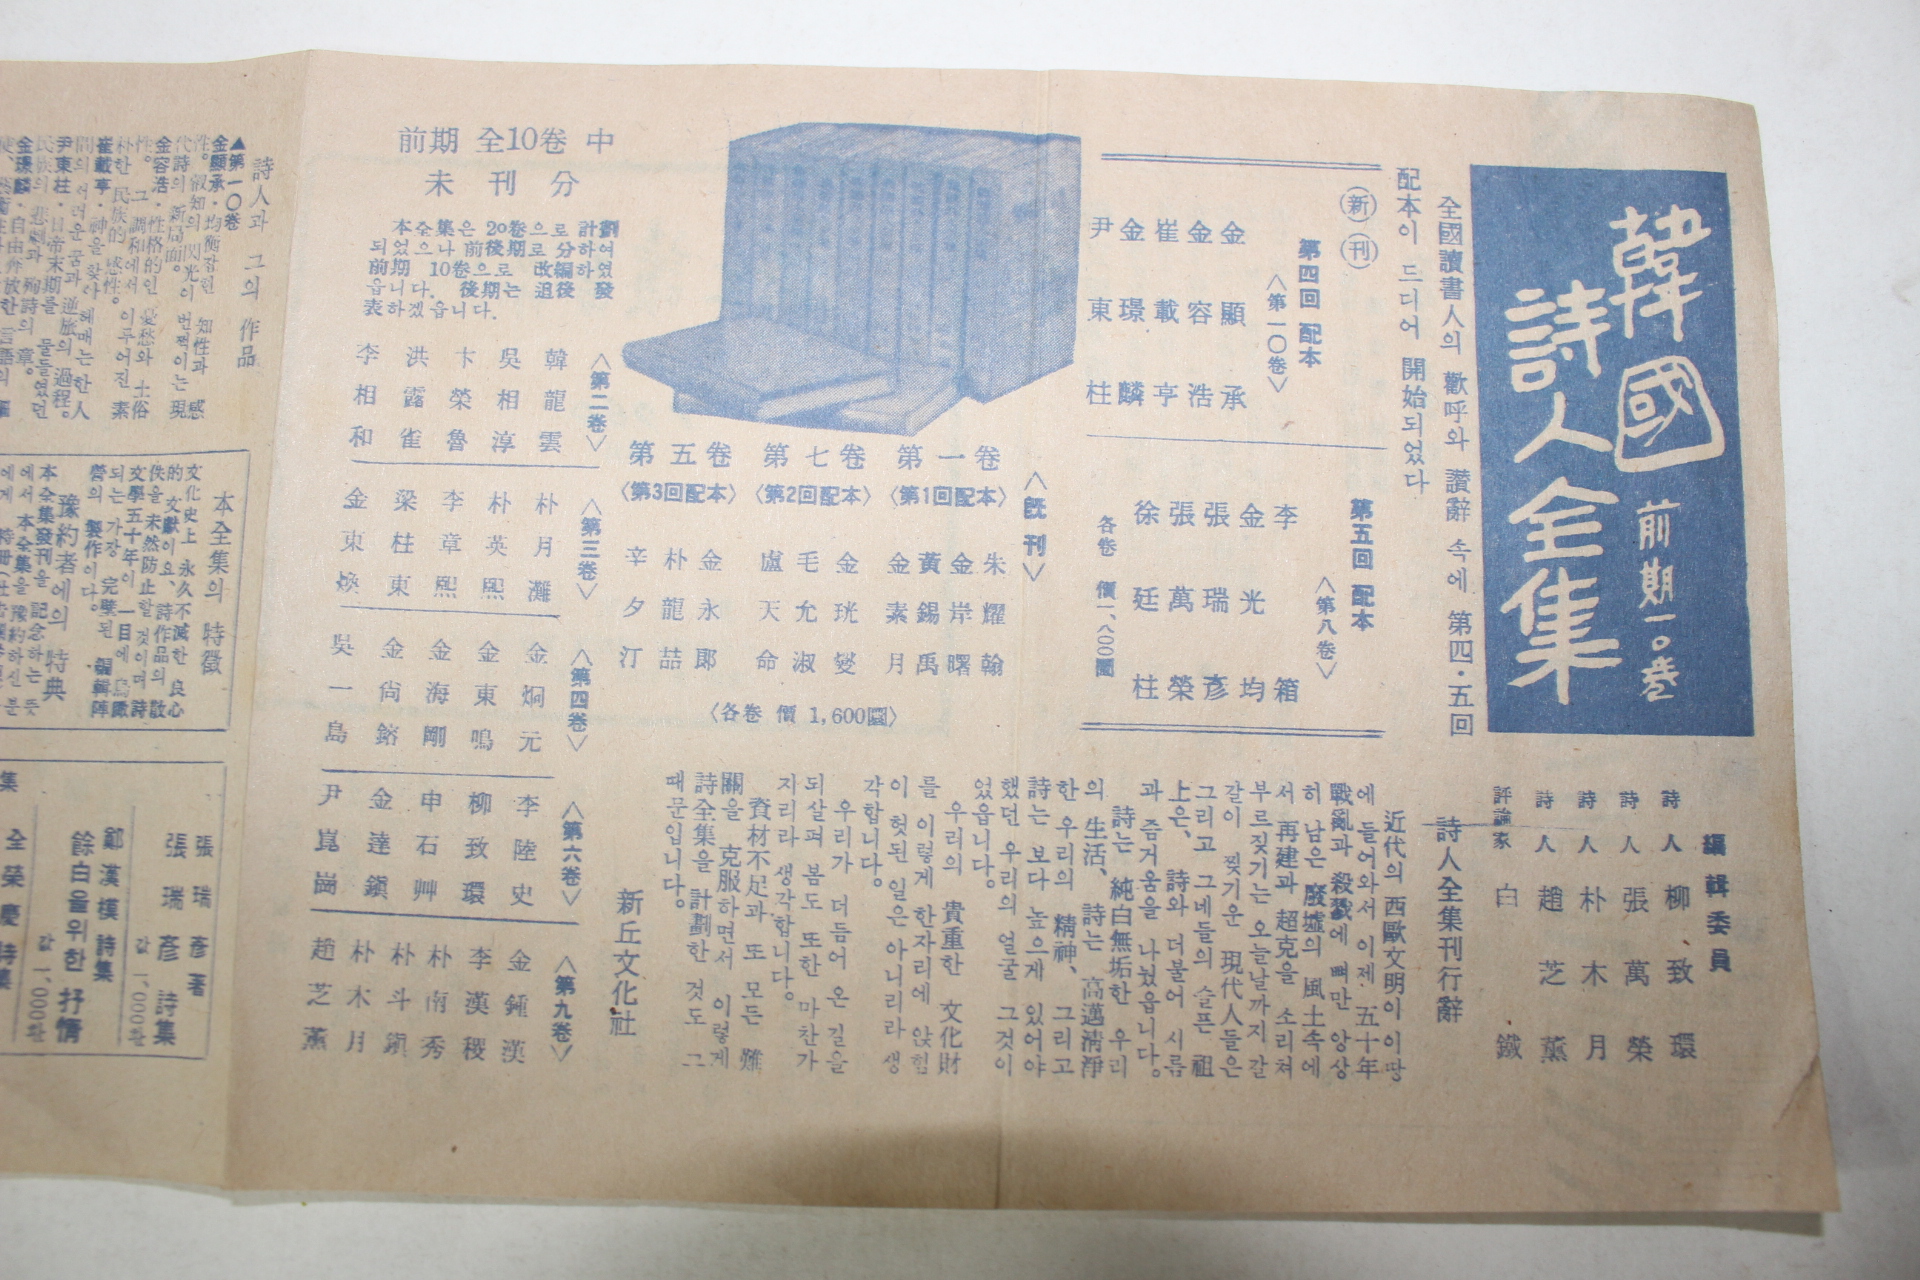 韓國
詩人全集
前期一〇巻
編輯委員
詩人 柳致環
詩人 張萬榮
詩人 朴木月
詩人 趙芝薰
評論家 白鐵
全國讀書人의 歡呼와 讚辭 속에 第四·五回
配本이 드디어 開始되었다
新刊
第四回 配本
〈第一〇卷〉
金顯承
金容浩
崔載亨
金璟麟
尹東柱
第五回 配本
〈第八卷〉
李箱
金光均
張瑞彥
張萬榮
徐廷柱
各卷 價一、八〇〇圜
詩人全集刊行辭
近代의 西歐文明이 이땅
에 들어와서 이제 五十年
戰亂과 殺戮에 뼈만 앙상
히 남은 廢墟의 風土속에
서 再建과 超克을 소리쳐
부르짖기는 오늘날까지 갈
갈이 찢기운 現代人들은
그리고 그네들의 슬픈 祖
上은、 詩와 더불어 시름
과 즐거움을 나눴읍니다。
詩는 純白無垢한 우리
의 生活、 詩는 高邁淸淨
한 우리의 精神、 그리고
詩는 보다 높으게 있어야
했던 우리의 얼굴 그것이
었읍니다。
우리의 貴重한 文化財
를 이렇게 한자리에 앉힘
이 헛된 일은 아니리라 생
각합니다。
우리가 더듬어 온 길을
되살펴 봄도 또한 마찬가
지리라 생각합니다。
資材不足과 또 모든 難
關을 克服하면서 이렇게
詩全集을 計劃한 것도 그
때문입니다。
新丘文化社
〈旣刊〉
第一卷
〈第1回配本〉
朱耀翰
金岸曙
黃錫禹
金素月
第七卷
〈第2回配本〉
金珖燮
毛允淑
盧天命
第五卷
〈第3回配本〉
金永郎
朴龍喆
辛夕汀
〈各卷 價 1,600圜〉
前期 全10卷 中
未刊分
本全集은 20卷으로 計劃
되었으나 前後期로 分하여
前期 10卷으로 改編하였
읍니다. 後期는 追後 發
表하겠읍니다.
〈第二卷〉
韓龍雲
吳相淳
卞榮魯
洪露雀
李相和
〈第三卷〉
朴月灘
朴英熙
李章熙
梁柱東
金東煥
〈第四卷〉
金炯元
金東鳴
金海剛
金尙鎔
吳一島
〈第六卷〉
李陸史
柳致環
申石艸
金達鎭
尹崑崗
〈第九卷〉
金鍾漢
李漢稷
朴南秀
朴斗鎭
朴木月
趙芝薰
詩人과 그의 作品
▲第一〇卷
金顯承·均衡잡힌 知性과 感
性。叡知의 閃光이 번쩍이는 現
代詩의 新局面。
金容浩·性格的인 憂愁와 土俗
性。 그 調和에서 이루어진 素
朴한 民族的 感性。
崔載亨·神을 찾아 헤매는 한人
間의 어려운 꿈과 逆旅의 過程。
尹東柱·日帝末期를 물들였던
民族의 悲劇과 殉詩의 章。
本全集의 特徵
文化史上 永久不滅한 良心
的 文獻이요、 詩作品의 散
佚을 未然防止할 것이며 詩
文學五十年이 一目에 鳥瞰
되는 가장 完璧된 編輯陣
營의 製作이다。
豫約者에의 特典
本全集發刊을 記念하는 뜻
에서 本全集을 豫約하신 분
張瑞彥著
張瑞彥詩集
값 一、〇〇〇환
鄭漢模詩集
餘白을위한抒情
값 一、〇〇〇환
全榮慶詩集